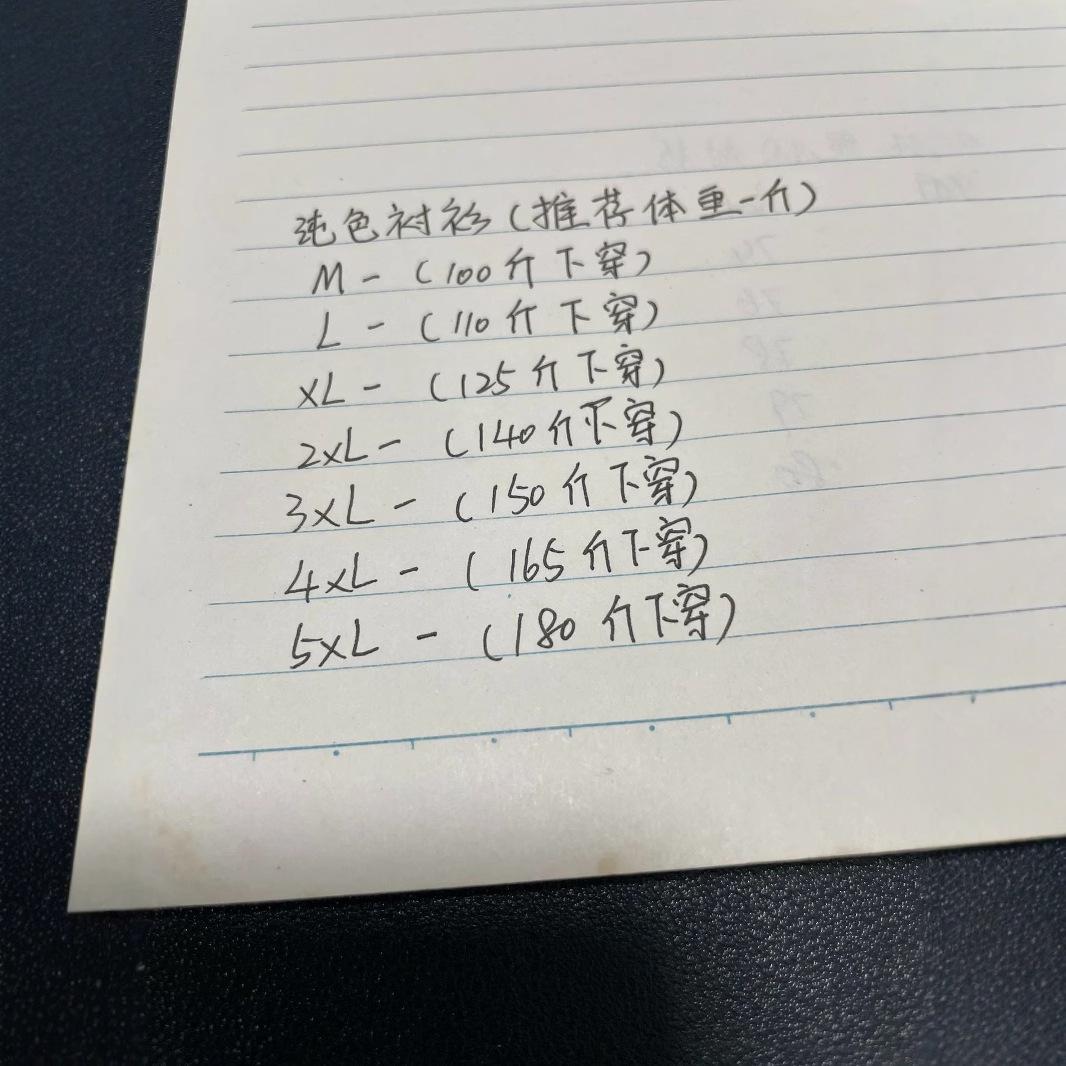 纯色衬衫(推荐体重-斤)
M-(100斤下穿)
L-(110斤下穿)
XL-(125斤下穿)
2XL-(140斤下穿)
3XL-(150斤下穿)
4XL-(165斤下穿)
5XL-(180斤下穿)